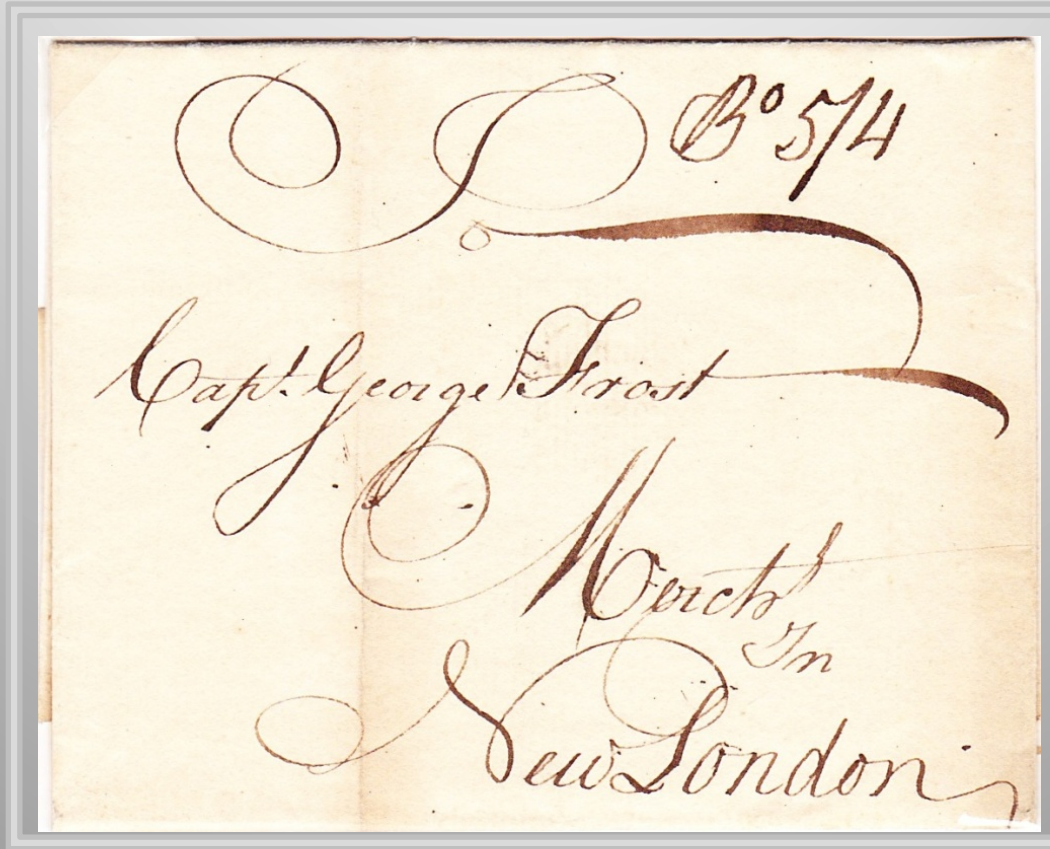 To Bº 5/4
Capt. George Frost
Mercht
In
New London